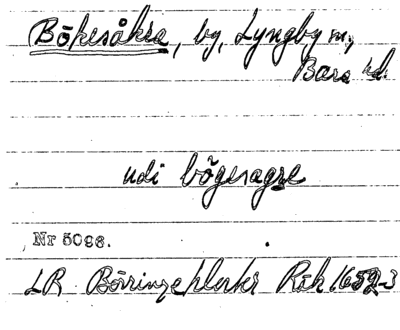 Bökesåkra, by, Lyngby sn,
Bara hd.
udi bögesagre
Nr 5098.
LR Börringeklosters Räk 1652-3